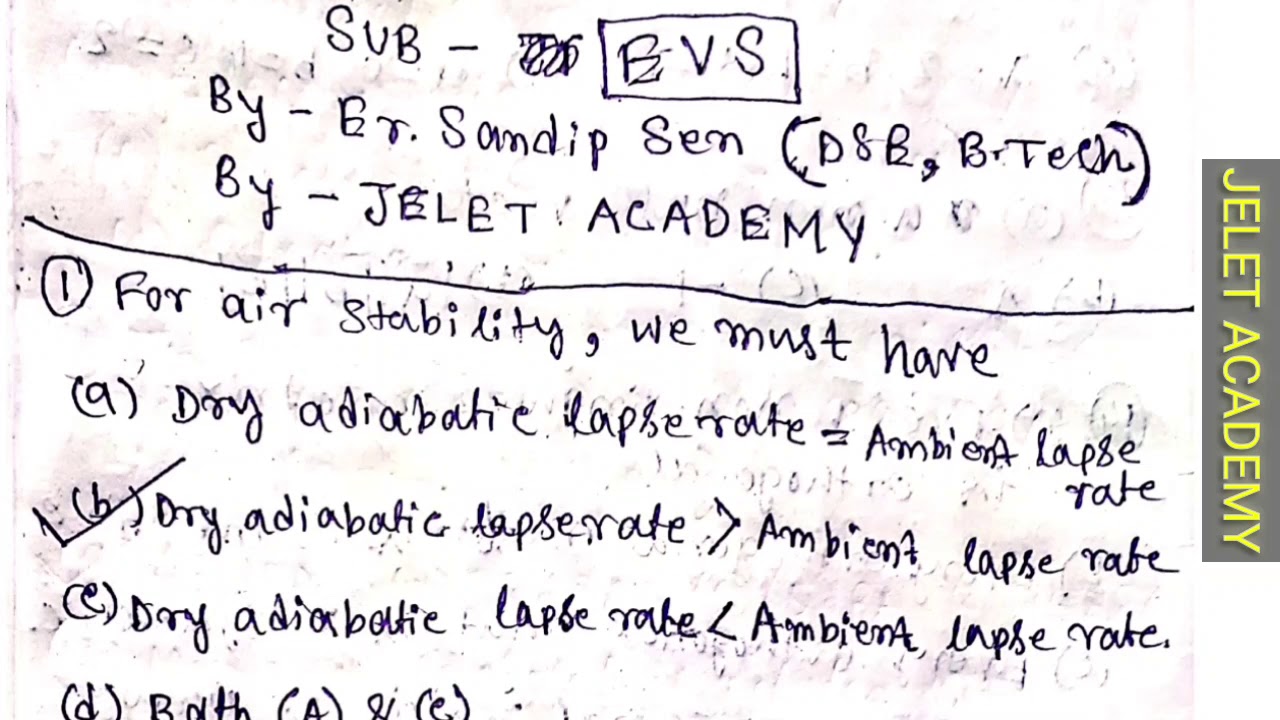 SUB - EVS
By - Er. Sandip Sen (DSE, B.Tech)
By - JELET ACADEMY
① For air stability, we must have
(a) Dry adiabatic lapse rate = Ambient lapse
rate
(b) Dry adiabatic lapse rate > Ambient lapse rate
(c) Dry adiabatic lapse rate < Ambient lapse rate.
(d) Both (A) & (c)
JELET ACADEMY